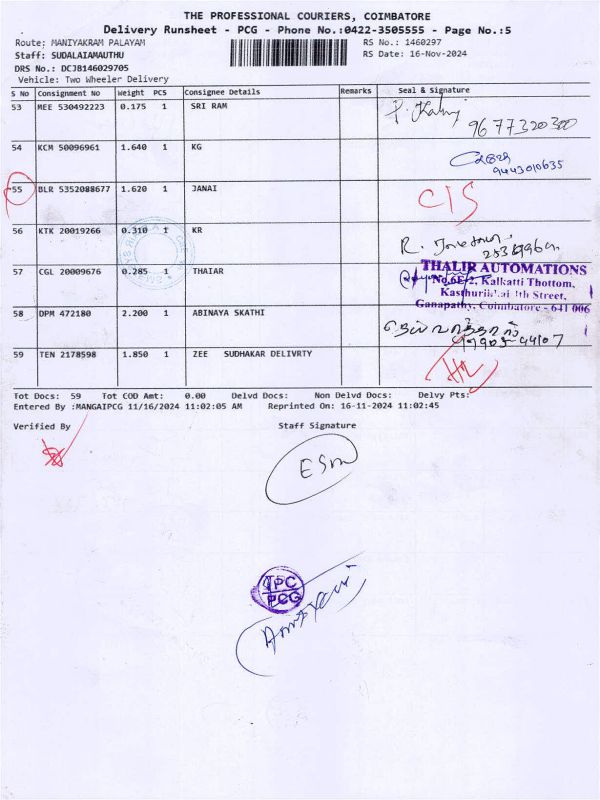 THE PROFESSIONAL COURIERS, COIMBATORE
Delivery Runsheet - PCG - Phone No.:0422-3505555 - Page No.:5
Route: MANIYAKRAM PALAYAM RS No.: 1460297
Staff: SUDALAIAMAUTHU RS Date: 16-Nov-2024
DRS No.: DCJB146029705
Vehicle: Two Wheeler Delivery
S No Consignment No Weight PCS Consignee Details Remarks Seal & Signature
53 MEE 530492223 0.175 1 SRI RAM
9677320300
54 KCM 50096961 1.640 1 KG
9443010635
55 BLR 5352088677 1.620 1 JANAI CIS
56 KTK 20019266 0.310 1 KR R.
57 CGL 20009676 0.285 1 THAIAR THALIR AUTOMATIONS
No.6E/2, Kalkatti Thottom,
Street,
Ganapathy, Coimbatore - 641 006
58 DPM 472180 2.200 1 ABINAYA SKATHI
59 TEN 2178598 1.850 1 ZEE SUDHAKAR DELIVRTY
Tot Docs: 59 Tot COD Amt: 0.00 Delvd Docs: Non Delvd Docs: Delvy Pts:
Entered By :MANGAIPCG 11/16/2024 11:02:05 AM Reprinted On: 16-11-2024 11:02:45
Verified By Staff Signature
ESM
TPC
PCG